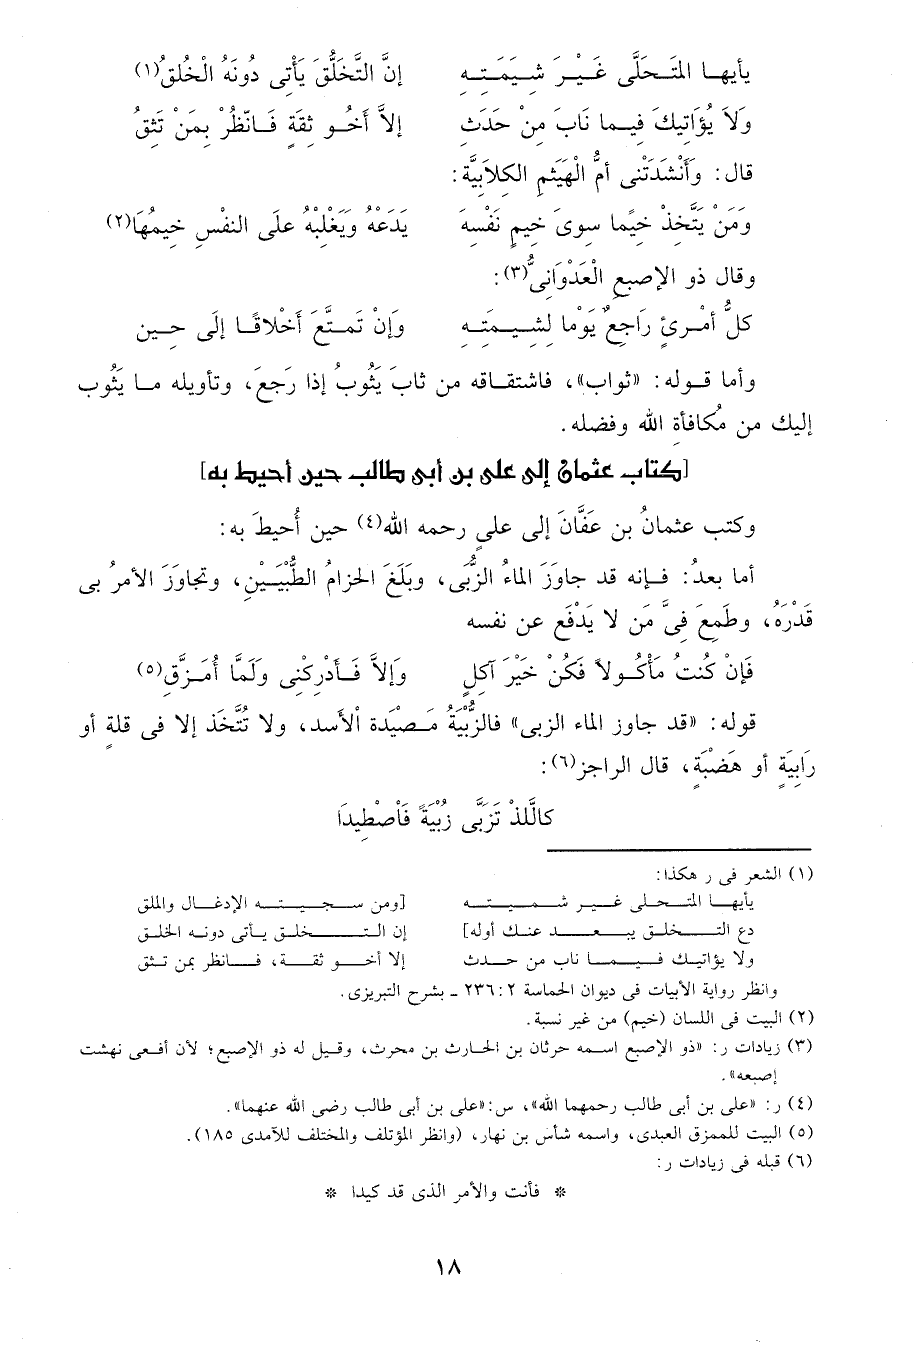 يأيها المتَحَلَّى غَيْرَ شِيمَتِهِ إنَّ التَّخَلُّقَ يَأْتِى دُونَهُ الْخُلُقُ(١)
ولَا يُؤَاتِيكَ فِيمَا نَابَ مِنْ حَدَثٍ إلاَّ أَخُو ثِقَةٍ فَانْظُرْ بِمَنْ تَثِقُ
قال: وَأَنْشَدَتْنِى أمُّ الْهَيْثمِ الكِلاَبِيَّة:
وَمَنْ يَتَّخِذْ خِيمًا سِوَى خِيمِ نَفْسِهِ يَدَعْهُ وَيَغْلِبْهُ عَلَى النفْسِ خِيمُهَا(٢)
وقال ذو الإصبع الْعَدْوَانِىُّ(٣):
كلُّ أمْرِئٍ رَاجِعٌ يَوْمًا لِشِيمَتِهِ وَإنْ تَمتَّعَ أَخْلاقًا إلَى حِين
وأما قوله: «ثواب»، فاشتقاقه من ثابَ يَثُوبُ إذا رَجعَ، وتأويله ما يَثُوب
إليك من مُكافأةِ الله وفضله.
[كتاب عثمان إلى على بن أبى طالب حين أحيط به]
وكتب عثمانُ بن عَفَّانَ إلى علىٍ رحمه الله(٤) حين أُحيطَ به:
أما بعدُ: فإنه قد جاوَزَ الماءُ الزُّبَى، وبَلَغَ الحزامُ الطُّبْيَيْنِ، وتجاوَزَ الأمرُ بى
قَدْرَهُ، وطَمِعَ فِىَّ مَن لا يَدْفَع عن نفسه
فَإنْ كُنتُ مَأْكُولاً فَكُنْ خَيْرَ آكلٍ وَإلاَّ فَأدْرِكْنِى ولَمَّا أُمَزَّقِ(٥)
قوله: «قد جاوز الماء الزبى» فالزُّبْيَةُ مَصِيْدَة الأسد، ولا تُتَّخَذ إلا فى قلةٍ أو
رَابِيَةٍ أو هَضْبَةٍ، قال الراجز(٦):
كاللَّذْ تَزَبَّى زُبْيَةً فَاْصْطِيدَا
(١) الشعر فى ر هكذا:
يأيها المتحلى غير شميته [ومن سجيته الإدغال والملق
دع التخلق يبعد عنك أوله] إن التخلق يأتى دونه الخلق
ولا يؤاتيك فيما ناب من حدث إلا أخو ثقة، فانظر بمن تثق
وانظر رواية الأبيات فى ديوان الحماسة ٢: ٢٣٦ ـ بشرح التبريزى.
(٢) البيت فى اللسان (خيم) من غير نسبة.
(٣) زيادات ر: «ذو الإصبع اسمه حرثان بن الحارث بن محرث، وقيل له ذو الإصبع؛ لأن أفعى نهشت
إصبعه».
(٤) ر: «على بن أبى طالب رحمهما الله»، س:«على بن أبى طالب رضى الله عنهما».
(٥) البيت للممزق العبدى، واسمه شأس بن نهار، (وانظر المؤتلف والمختلف للآمدى ١٨٥).
(٦) قبله فى زيادات ر:
* فأنت والأمر الذى قد كيدا *
١٨